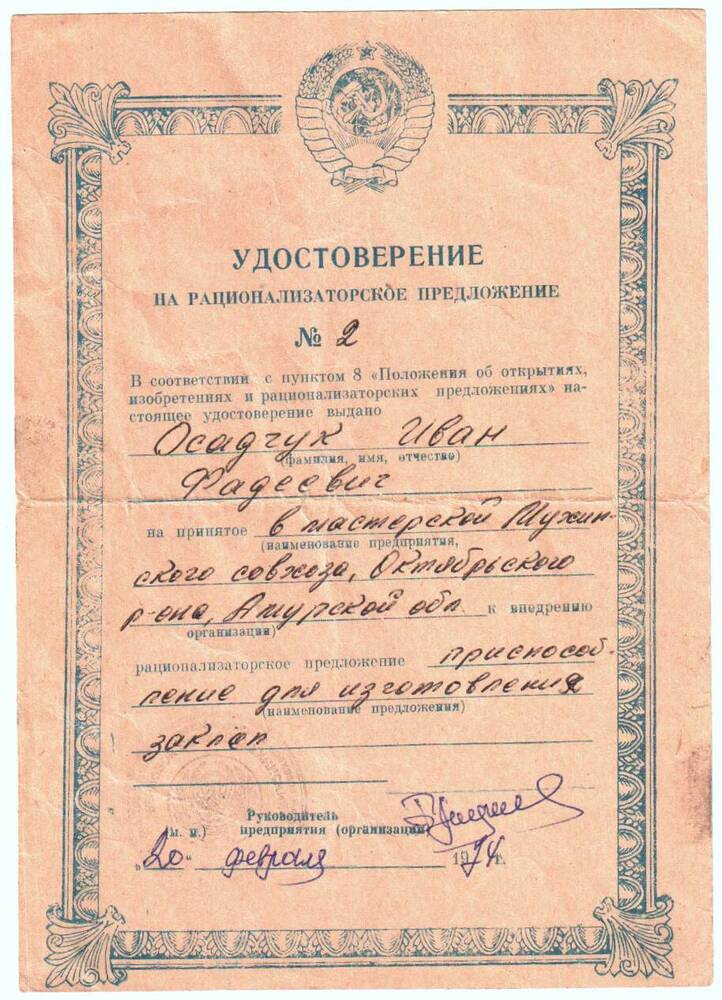 УДОСТОВЕРЕНИЕ
НА РАЦИОНАЛИЗАТОРСКОЕ ПРЕДЛОЖЕНИЕ
№ 2
В соответствии с пунктом 8 «Положения об открытиях,
изобретениях и рационализаторских предложениях» на-
стоящее удостоверение выдано
Осадчук Иван
(фамилия, имя, отчество)
Фадеевич
на принятое в мастерской Мухин-
(наименование предприятия,
ского совхоза, Октябрьского
р-она, Амурской обл. к внедрению
организации)
рационализаторское предложение приспособ-
ление для изготовления
(наименование предложения)
заклеп
Руководитель
(м. п.) предприятия (организации)
„20“ февраля 1974 г.